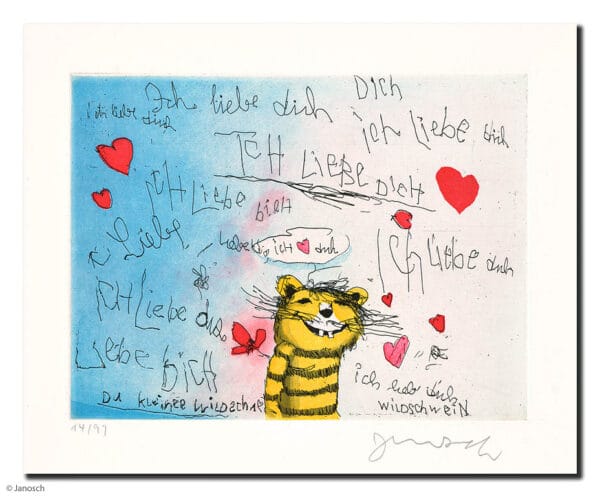 Ich liebe dich
Ich liebe dich
DICH
ich liebe dich
ICH LIEBE DICH
ICH LIEBE DICH
Liebe
ich dich
ICH liebe dich
ICH LIEBE dich
LIEBE DICH
DU kleines
ich lieb dich
WILDSCHWEIN
14/99
Janosch
© Janosch